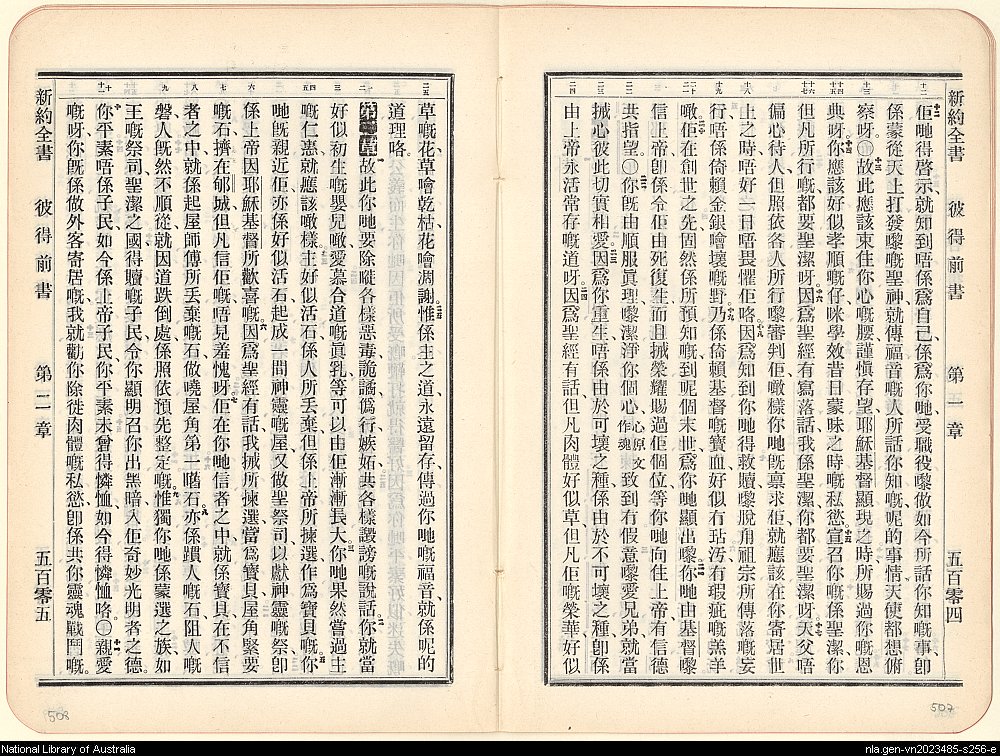 新約全書 彼得前書 第一章 五百零四
佢哋得啓示就知到唔係爲自己係爲你哋受職役嚟做如今所話你知嘅事、卽
係蒙從天上打發嚟嘅聖神、就傳福音嘅人所話你知嘅呢的事情、天使都想俯
察呀。○故此應該束住你心嘅腰謹愼存望、耶穌基督顯現之時、所賜過你嘅恩
典呀。你應該好似孝順嘅仔、咪學效昔日蒙昧之時嘅私慾、宣召你嘅係聖潔、你
但凡所行嘅都要聖潔呀。因爲聖經有寫落話、我係聖潔、你都要聖潔呀。天父唔
偏心待人、但照依各人所行嚟審判佢、噉樣你哋旣禀求佢、就應該在你寄居世
上之時、唔好一日唔畏懼佢咯。因爲知到你哋得救贖嚟脫甪祖宗所傳落嘅妄
行、唔係倚賴金銀噲壞嘅野、乃係倚賴基督嘅寶血、好似冇玷汚冇瑕疵嘅羔羊
噉。佢在創世之先、固然係所預知嘅、到呢個末世爲你哋顯出嚟。你哋由基督嚟
信上帝、卽係令佢由死復生、而且搣榮耀賜過佢個位、等你哋向住上帝有信德
共指望。○你旣由順服眞理嚟潔淨你個心、心原文作魂 致到冇假意嚟愛兄弟、就當
搣心彼此切實相愛。因爲你重生唔係由於可壞之種、係由於不可壞之種、卽係
由上帝永活常存嘅道呀。因爲聖經有話、但凡肉體好似草、但凡佢嘅榮華好似
507
草嘅花、草噲乾枯、花噲凋謝。惟係主之道、永遠留存、傳過你哋嘅福音、就係呢的
道理咯。
第二章 故此你哋要除嘥各樣惡毒、詭譎、僞行、嫉妬、共各樣譭謗嘅說話、你就當
好似初生嘅嬰兒噉、愛慕合道嘅眞乳、等可以由佢漸漸長大。你哋果然嘗過主
嘅仁惠、就應該噉樣。主好似活石、係人所丟棄、但係上帝所揀選、作爲寶貝嘅、你
哋旣親近佢、亦係好似活石、起成一間神靈嘅屋、又做聖祭司、以獻神靈嘅祭、卽
係上帝因耶穌基督所歡喜嘅。因爲聖經有話、我搣所揀選、當爲寶貝、屋角緊要
嘅石、擠在郇城、但凡信佢嘅、唔見羞愧呀。佢在你哋信者之中、就係寶貝、在不信
者之中、就係起屋師傅所丟棄嘅石、做曉屋角第一嚿石、亦係躓人嘅石、阻人嘅
磐、人旣然不順從、就因道跌倒、處係照依預先整定嘅。惟獨你哋係蒙選之族、如
王嘅祭司、聖潔之國、得贖嘅子民、令你顯明召你出黑暗、入佢奇妙光明者之德。
你平素唔係子民、如今係上帝子民、你平素未曾得憐恤、如今得憐恤咯。○親愛
嘅呀、你旣係做外客寄居嘅、我就勸你除徙肉體嘅私慾、卽係共你靈魂戰鬥嘅。
新約全書 彼得前書 第二章 五百零五
508
National Library of Australia
nla.gen-vn2023485-s256-e